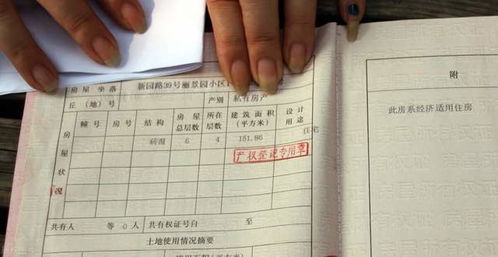 房屋坐落 新园路39号丽景园小区
丘(地)号 产别 私有房产
幢号 房号 结构 房屋总层数 所在层数 建筑面积(平方米) 设计用途
房屋状况
砖混 6 4 151.86 住宅
产权登记专用章
共有人 等 0 人 共有权证号自 至
土地使用情况摘要
附
此房系经济适用住房